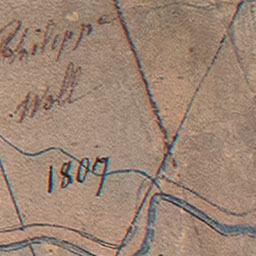 Philippe
Woll
1807